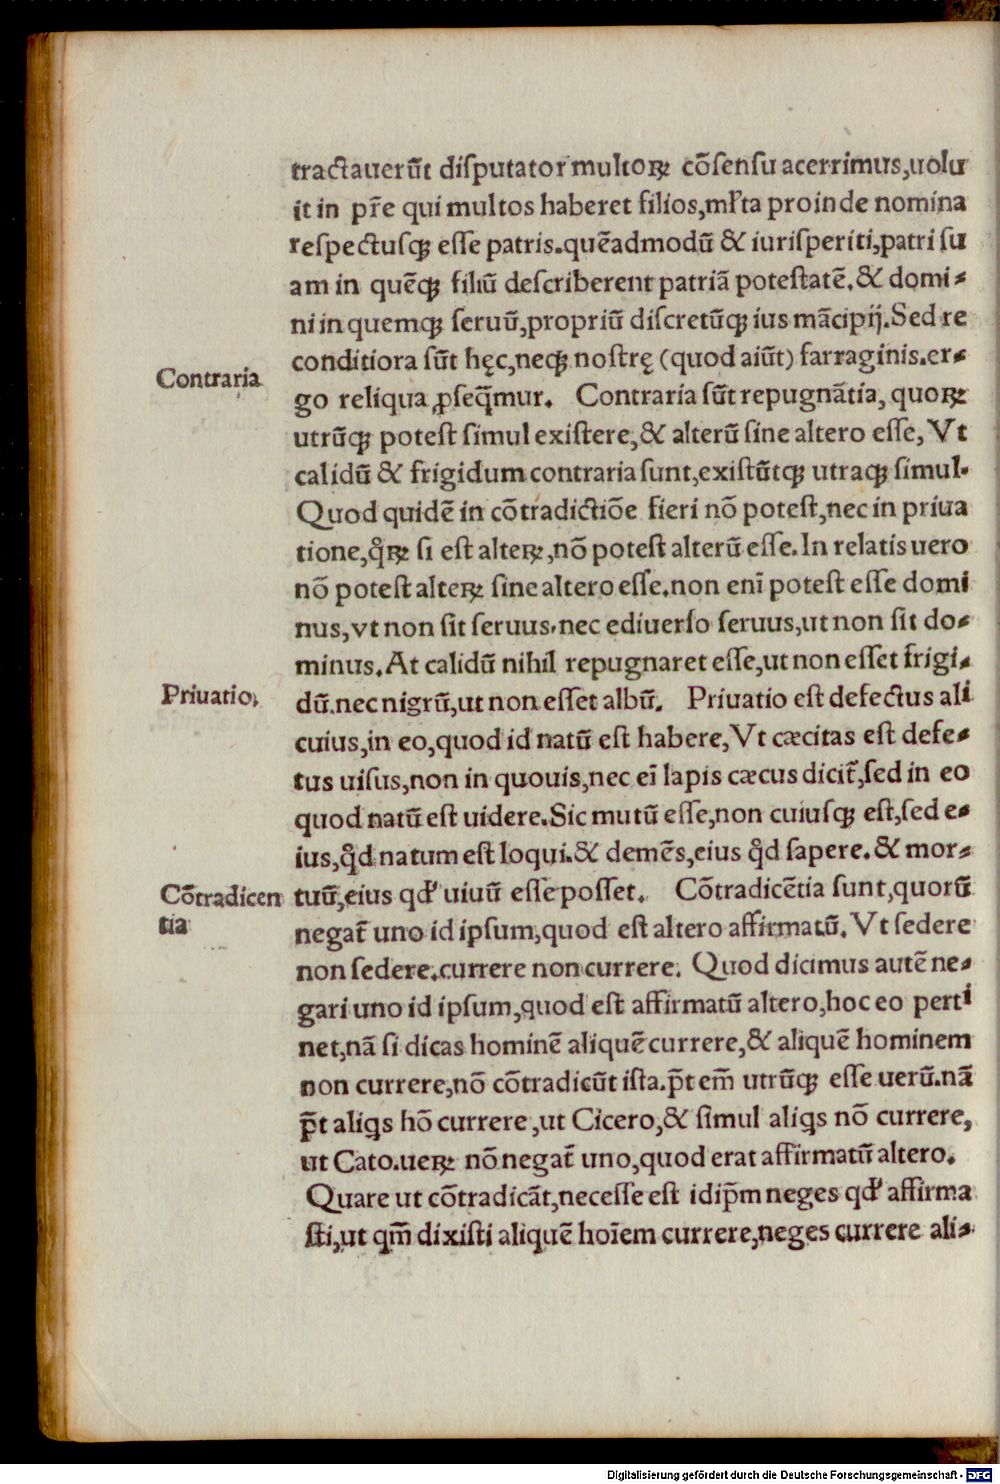 tractauerūt disputator multoꝝ cōsensu acerrimus,uolu
it in pr̄e qui multos haberet filios,ml̄ta proinde nomina
respectusqꝫ esse patris.quēadmodū & iurisperiti,patri su
am in quēqꝫ filiū describerent patriā potestatē.& domi⸗
ni in quemqꝫ seruū,propriū discretūqꝫ ius mācipij.Sed re
conditiora sūt hęc,neqꝫ nostrę (quod aiūt) farraginis.er⸗
Contraria
go reliqua ꝓseq̄mur. Contraria sūt repugnātia, quoꝝ
utrūqꝫ potest simul existere,& alterū sine altero esse, Vt
calidū & frigidum contraria sunt,existūtqꝫ utraqꝫ simul.
Quod quidē in cōtradictiōe fieri nō potest,nec in priua
tione,qͣꝝ si est alteꝝ,nō potest alterū esse.In relatis uero
nō potest alteꝝ sine altero esse.non enī potest esse domi
nus,vt non sit seruus.nec ediuerso seruus,ut non sit do⸗
minus.At calidū nihil repugnaret esse,ut non esset frigi⸗
Priuatio.
dū.nec nigrū,ut non esset albū. Priuatio est defectus ali
cuius,in eo,quod id natū est habere,Vt cæcitas est defe⸗
tus uisus,non in quouis,nec eī lapis cæcus dicit̄,sed in eo
quod natū est uidere.Sic mutū esse,non cuiusqꝫ est,sed e⸗
ius,qͥd natum est loqui.& demēs,eius qͥd sapere.& mor⸗
Cōtradicen
tia
tuū,eius qd' uiuū esse posset. Cōtradicētia sunt,quorū
negat̄ uno id ipsum,quod est altero affirmatū. Vt sedere
non sedere.currere non currere. Quod dicimus autē ne⸗
gari uno id ipsum,quod est affirmatū altero,hoc eo perti
net,nā si dicas hominē aliquē currere,& aliquē hominem
non currere,nō cōtradicūt ista.p̄t em̄ utrūqꝫ esse uerū.nā
p̄t aliqs hō currere,ut Cicero,& simul aliqs nō currere,
ut Cato.ueꝝ nō negat̄ uno,quod erat affirmatū altero.
Quare ut cōtradicāt,necesse est idip̄m neges qd' affirma
sti,ut qm̄ dixisti aliquē hoīem currere,neges currere ali⸗
Digitalisierung gefördert durch die Deutsche Forschungsgemeinschaft - DFG